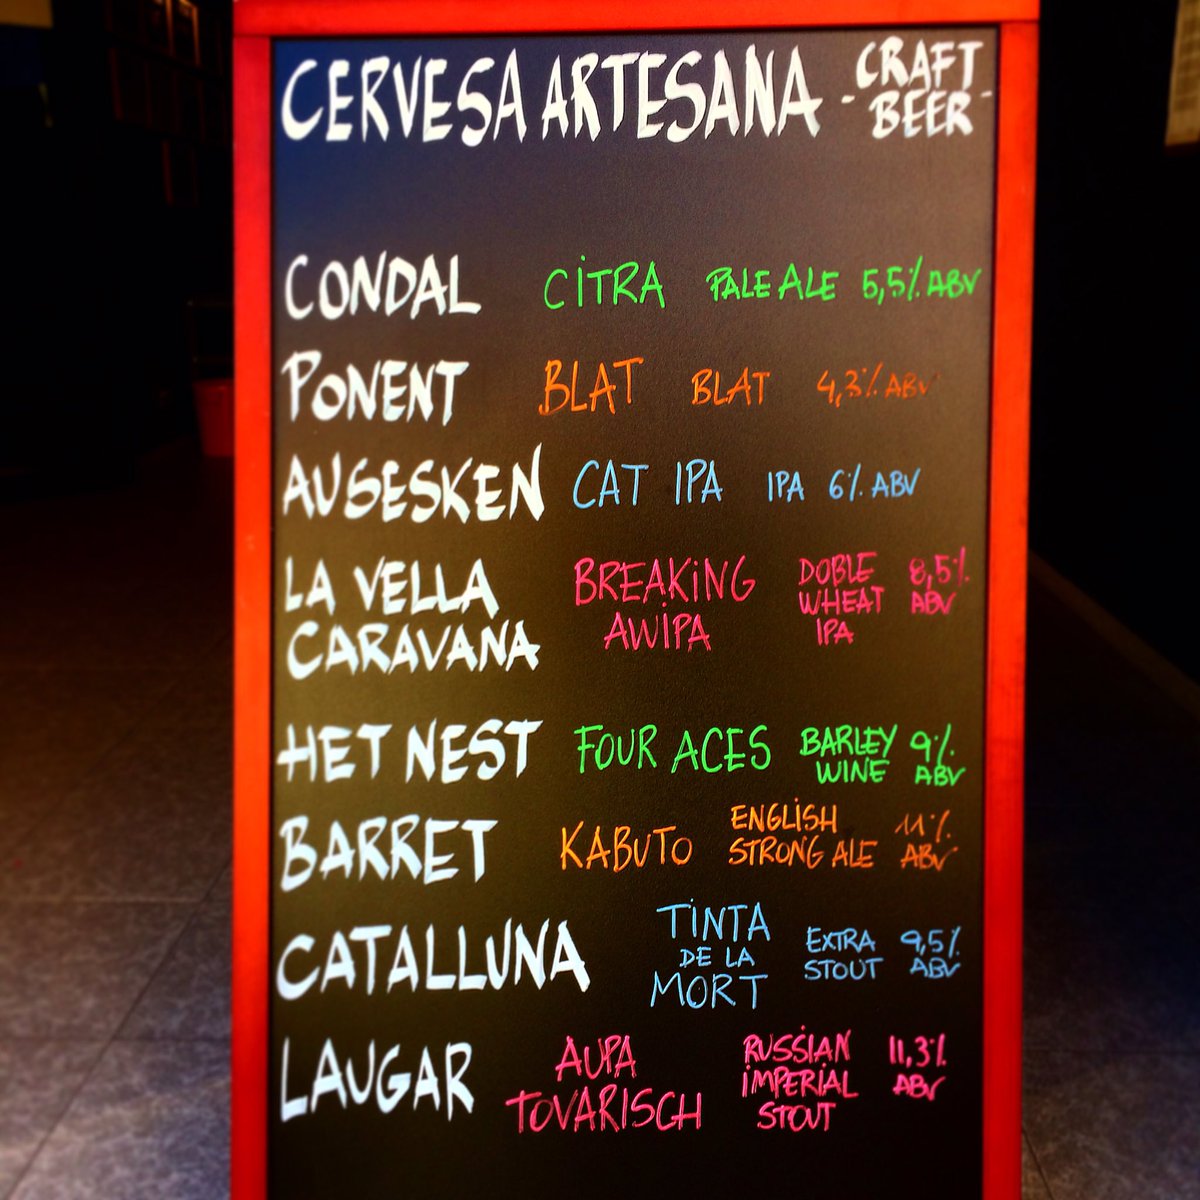 CERVESA ARTESANA - CRAFT BEER -
CONDAL CITRA PALE ALE 5,5% ABV
PONENT BLAT BLAT 4,3% ABV
AUGESKEN CAT IPA IPA 6% ABV
LA VELLA CARAVANA BREAKING AWIPA DOBLE WHEAT IPA 8,5% ABV
HET NEST FOUR ACES BARLEY WINE 9% ABV
BARRET KABUTO ENGLISH STRONG ALE 11% ABV
CATALLUNA TINTA DE LA MORT EXTRA STOUT 9,5% ABV
LAUGAR AUPA TOVARISCH RUSSIAN IMPERIAL STOUT 11,3% ABV